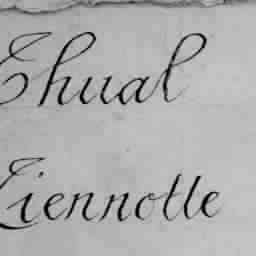 Thual
Liennotte